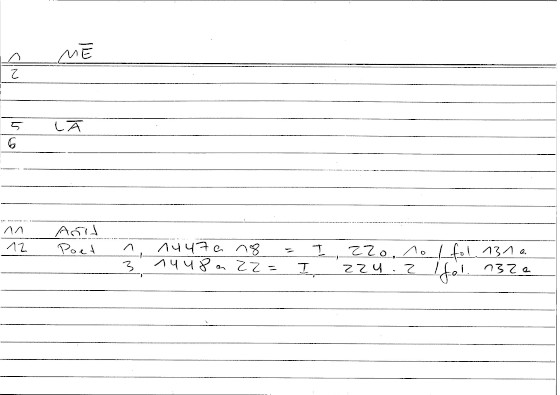 1 MĒ
2
5 LĀ
6
11 Arist
12 Poet 1, 1447a 18 = I, 220, 10 / fol. 131a
3, 1448a 22 = I, 224. 2 / fol. 132a